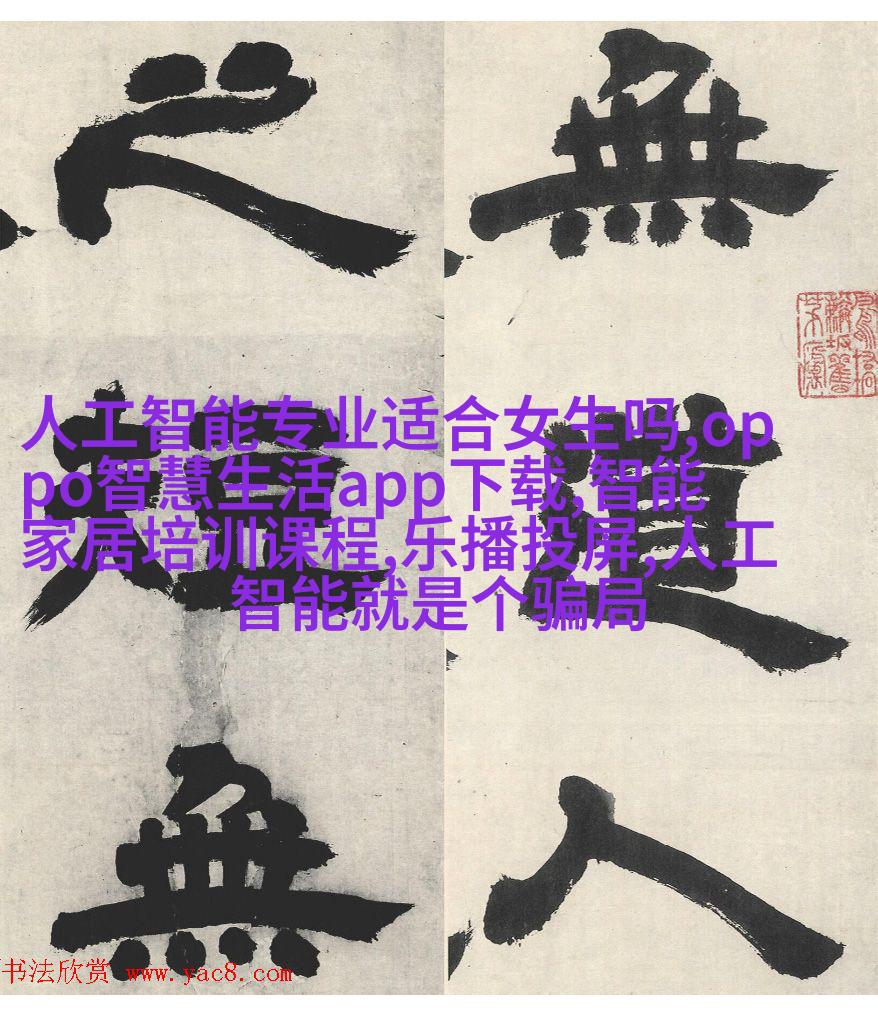 無道人
之短無
人工智能专业适合女生吗,op
po智慧生活app下载,智能
家居培训课程,乐播投屏,人工
智能就是个骗局
书法欣赏 www.yac8.com